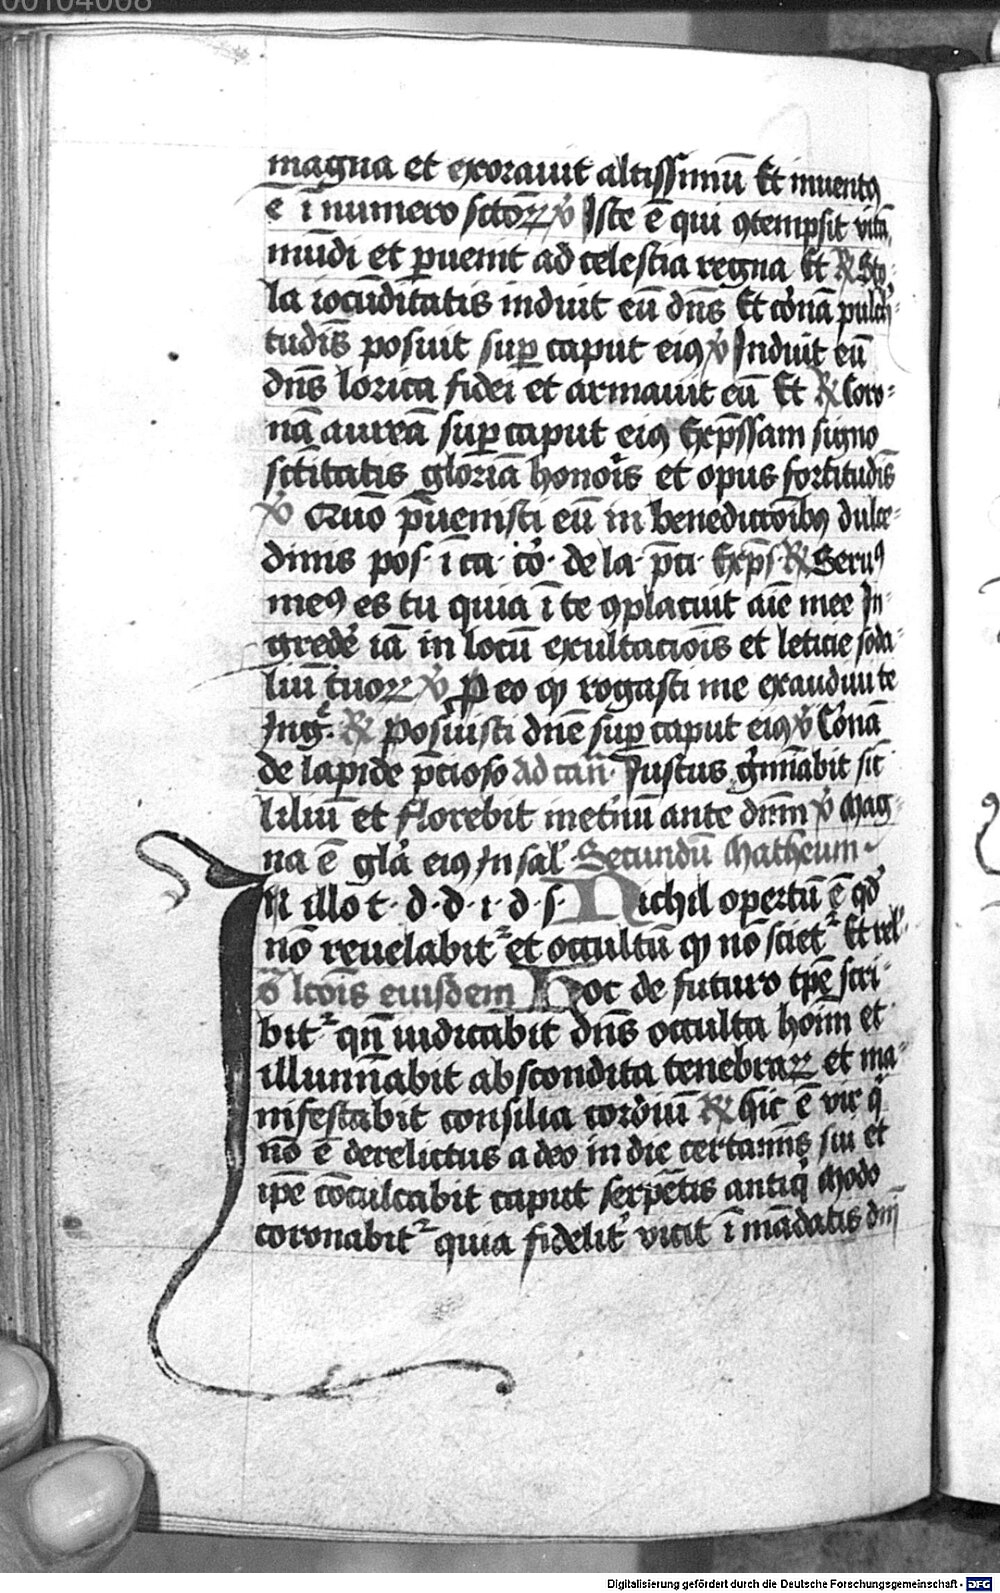 00104008
magna et exorauit altissimū Et inuentꝯ
ē ī numero sctōꝝ ℣ Iste ē qui ꝯtempsit vitā
mūdi et puenit ad celestia regna Et ℟ Sto-
la iocūditatis induit eū dn̄s Et co'nā pulch'-
tudīs posuit suꝑ caput eiꝯ ℣ Induit eū
dn̄s lorica fidei et armauit eū Et ℟ Coro-
nā aureā suꝑ caput eiꝯ Exp̄ssam signo
sctītatis gloriā honoīs et opus fortitudīs
℣ Qm̄ p̄uenisti eū in benedictoībꝯ dulce-
dinis pos· ī ca· co'· de la· p̄ci· Exp̄s ℟ Seruꝯ
meꝯ es tu quia ī te ꝯplacuit aīe mee In-
grede' iā in locū exultacioīs et leticie soda-
liū tuoꝝ ℣ P eo ꝙ rogasti me exaudiui te
Ing'. ℟ Posuisti dn̄e suꝑ caput eiꝯ ℣ Co'nā
de lapide p̄cioso Ad can̄· Iustus g'mīabit sic̄
liliū et florebit inet'nū ante dn̄m ℣ Mag-
na ē gl'a eiꝯ In sal' Secundū Matheum
IN illo t· d· d· i· d· s· Nichil opertū ē qd'
nō reuelabit᷑ et occultū ꝙ nō sciet᷑ Et rel'·
O' lcōis eiusdem Hoc de futuro tp̄e scri-
bit᷑ qn̄ iudicabit dn̄s occulta hoīm et
illumīabit abscondita tenebraꝝ et ma-
nifestabit consilia cordiū ℟ Hic ē vir q'
nō ē derelictus a deo in die certamīs sui et
ip̄e cōculcabit caput serpētis antiq' Modo
coronabit᷑ quia fidelit' vicit ī mādatis dn̄i
Digitalisierung gefördert durch die Deutsche Forschungsgemeinschaft - DFG